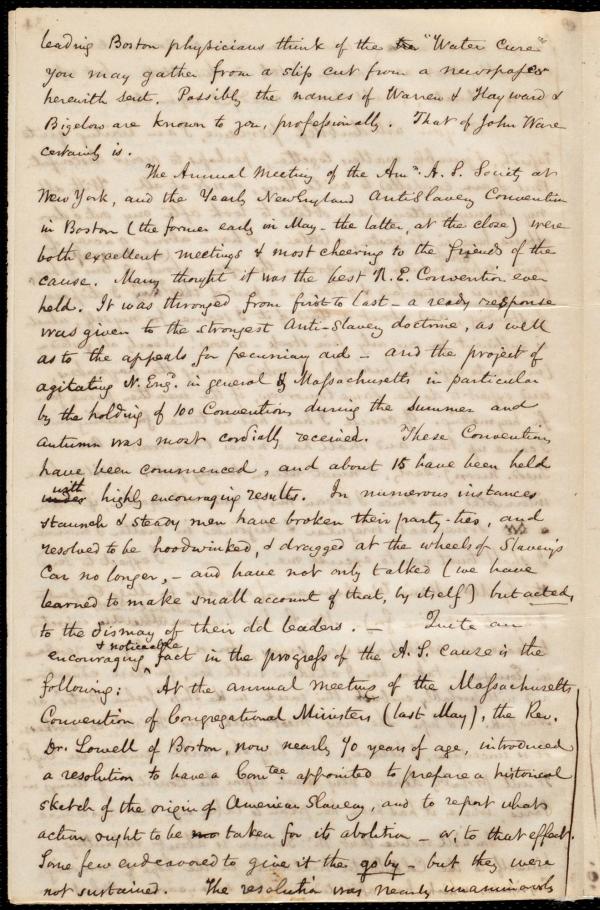 leading Boston physicians think of the "Water Cure"
you may gather from a slip cut from a newspaper
herewith sent. Possibly the names of Warren & Hayward &
Bigelow are known to you, professionally. That of John Ware
certainly is.
The Annual Meeting of the Amn. A. S. Society at
New York, and the Yearly New England AntiSlavery Convention
in Boston (the former early in May - the latter, at the close) were
both excellent meetings & most cheering to the friends of the
cause. Many thought it was the best N. E. Convention ever
held. It was thronged from first to last - a ready response
was given to the strongest Anti-Slavery doctrine, as well
as to the appeals for pecuniary aid - and the project of
agitating N. Eng. in general & Massachusetts in particular
by the holding of 100 Conventions during the Summer and
Autumn was most cordially received. These Conventions
have been commenced, and about 15 have been held
with highly encouraging results. In numerous instances
staunch & steady men have broken their party-ties, and
resolved to be hoodwinked, & dragged at the wheels of Slavery's
Car no longer, - and have not only talked (we have
learned to make small account of that, by itself) but acted,
to the dismay of their old leaders. - Quite an
encouraging & noticeable fact in the progress of the A. S. cause is the
following: At the annual meeting of the Massachusetts
Convention of Congregational Ministers (last May), the Rev.
Dr. Lowell of Boston, now nearly 70 years of age, introduced
a resolution to have a Comtee. appointed to prepare a historical
sketch of the origin of American Slavery, and to report what
action ought to be taken for its abolition - or, to that effect.
Some few endeavored to give it the go by - but they were
not sustained. The resolution was nearly unanimously